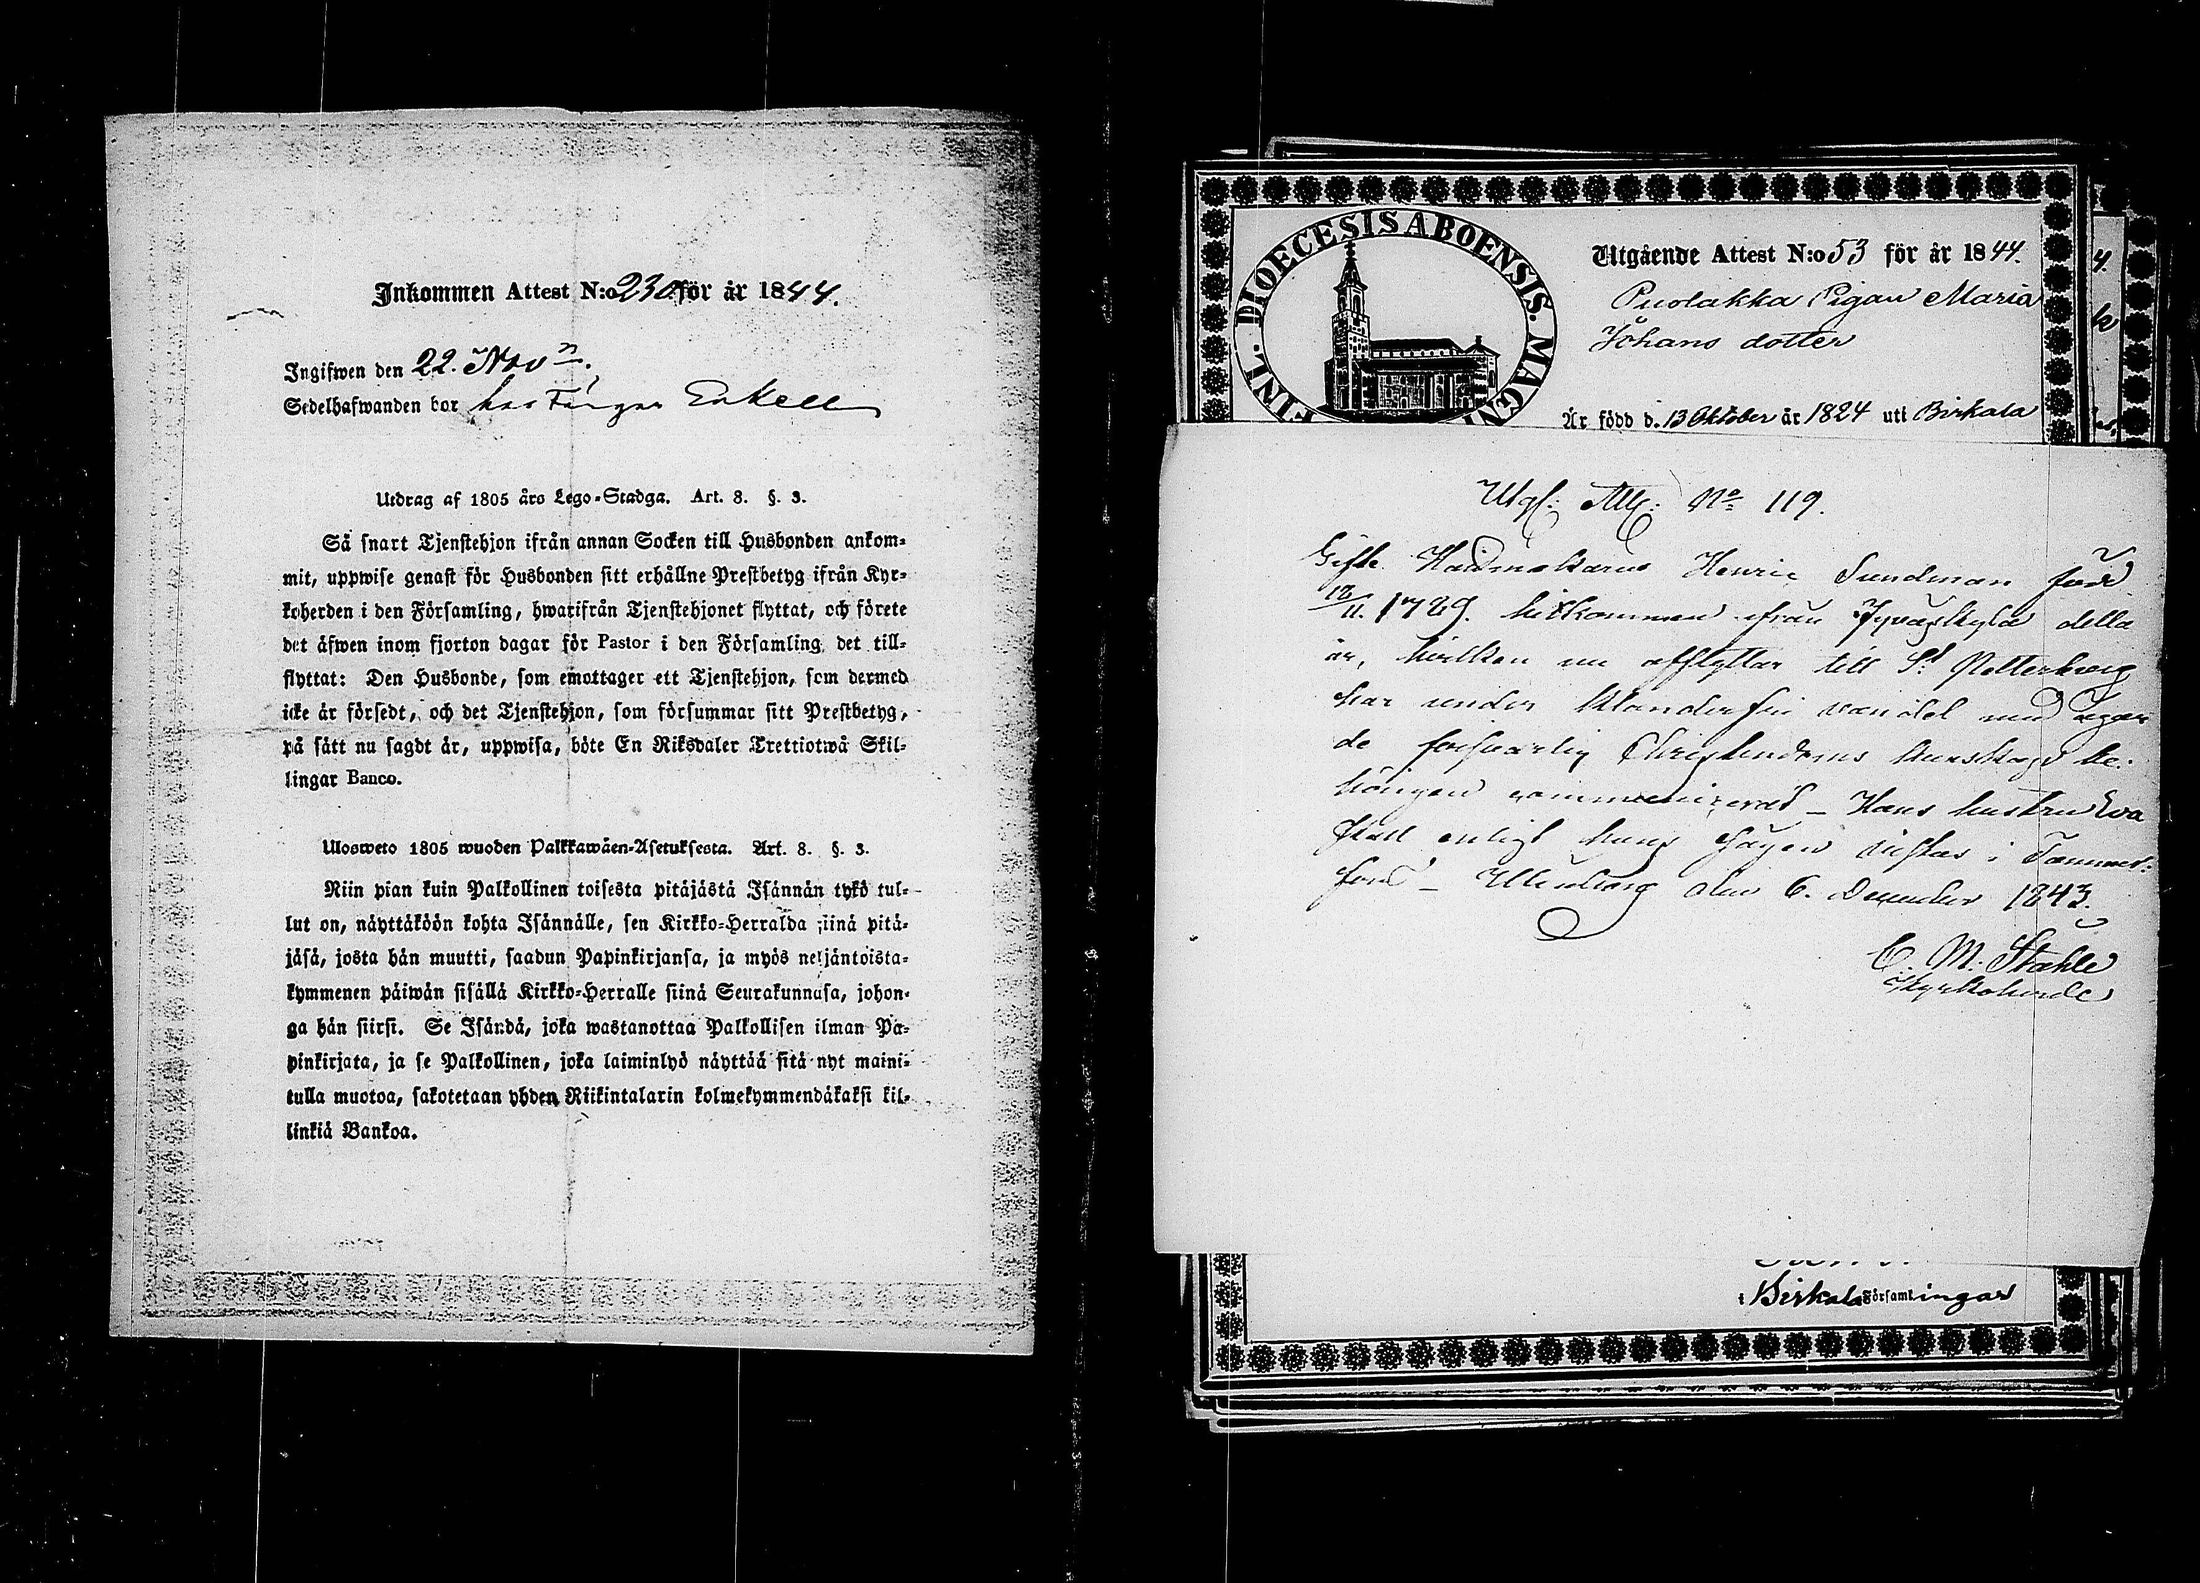 Inkommen Attest N:o 230 för år 1844.
Ingifwen den 22. Nov
Sedelhafwanden bor hos Färgar Enkell
Utdrag af 1805 års Lego-Stadga. Art. 8. §. 3.
Så snart Tjenstehjon ifrån annan Socken till Husbonden ankom-
mit, uppwise genast för Husbonden sitt erhållne Prestbetyg ifrån Kyr-
koherden i den Församling, hwarifrån Tjenstehjonet flyttat, och förete
det äfwen inom fjorton dagar för Pastor i den Församling, det till-
flyttat: Den Husbonde, som emottager ett Tjenstehjon, som dermed
icke är försedt, och det Tjenstehjon, som försummar sitt Prestbetyg,
på sätt nu sagdt är, uppwisa, böte En Riksdaler Trettiotwå Skil-
lingar Banco.
Ulosweto 1805 wuoden Palkkawäen-Asetuksesta. Art. 8. §. 3.
Niin pian kuin Palkollinen toisesta pitäjästä Isännän tykö tul-
lut on, näyttäköön kohta Isännälle, sen Kirkko-Herralda siinä pitä-
jäsä, josta hän muutti, saadun Papinkirjansa, ja myös neljäntoista-
kymmenen päiwän sisällä Kirkko-Herralle siinä Seurakunnasa, johon-
ga hän siirsi. Se Isändä, joka wastanottaa Palkollisen ilman Pa-
pinkirjata, ja se Palkollinen, joka laiminlyö näyttää sitä nyt maini-
tulla muotoa, sakotetaan yhden Riikintalarin kolmekymmendäkaksi kil-
linkiä Bankoa.
FINL. DIOECESIS ABOENSIS. MAGN
Utgående Attest N:o 53 för år 1844.
Puolakka Pigan Maria
Johans dotter
Är född d. 13 Oktober år 1824 uti Birkala
Utgf: Att: No 119.
Gifte Handmakaren Henric Sundman född
12/11. 1789. hitkommen ifrån Jyväskylä detta
år, hvilken nu afflyttar till St Petterborg
har under klanderfri vandel med ägan-
de försvarlig Christendoms kunskap be-
hörigen communicerat – Hans hustru Eva
skall enligt hans sägen vistas i Tammer-
fors – Uleaborg den 6. December 1843.
C. M. Ståhle
Kyrkoherde
i Birkala Församlingar